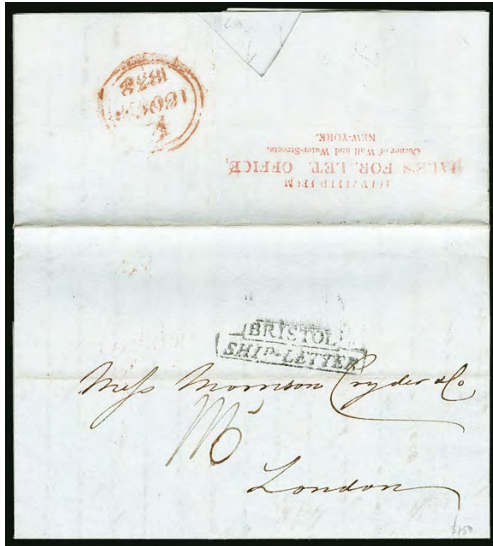 1838
HALE'S FOR. LET. OFFICE,
Corner of Wall and Water-Streets,
NEW-YORK.
BRISTOL
SHIP-LETTER
Mess Morrison Cryder & Co
London